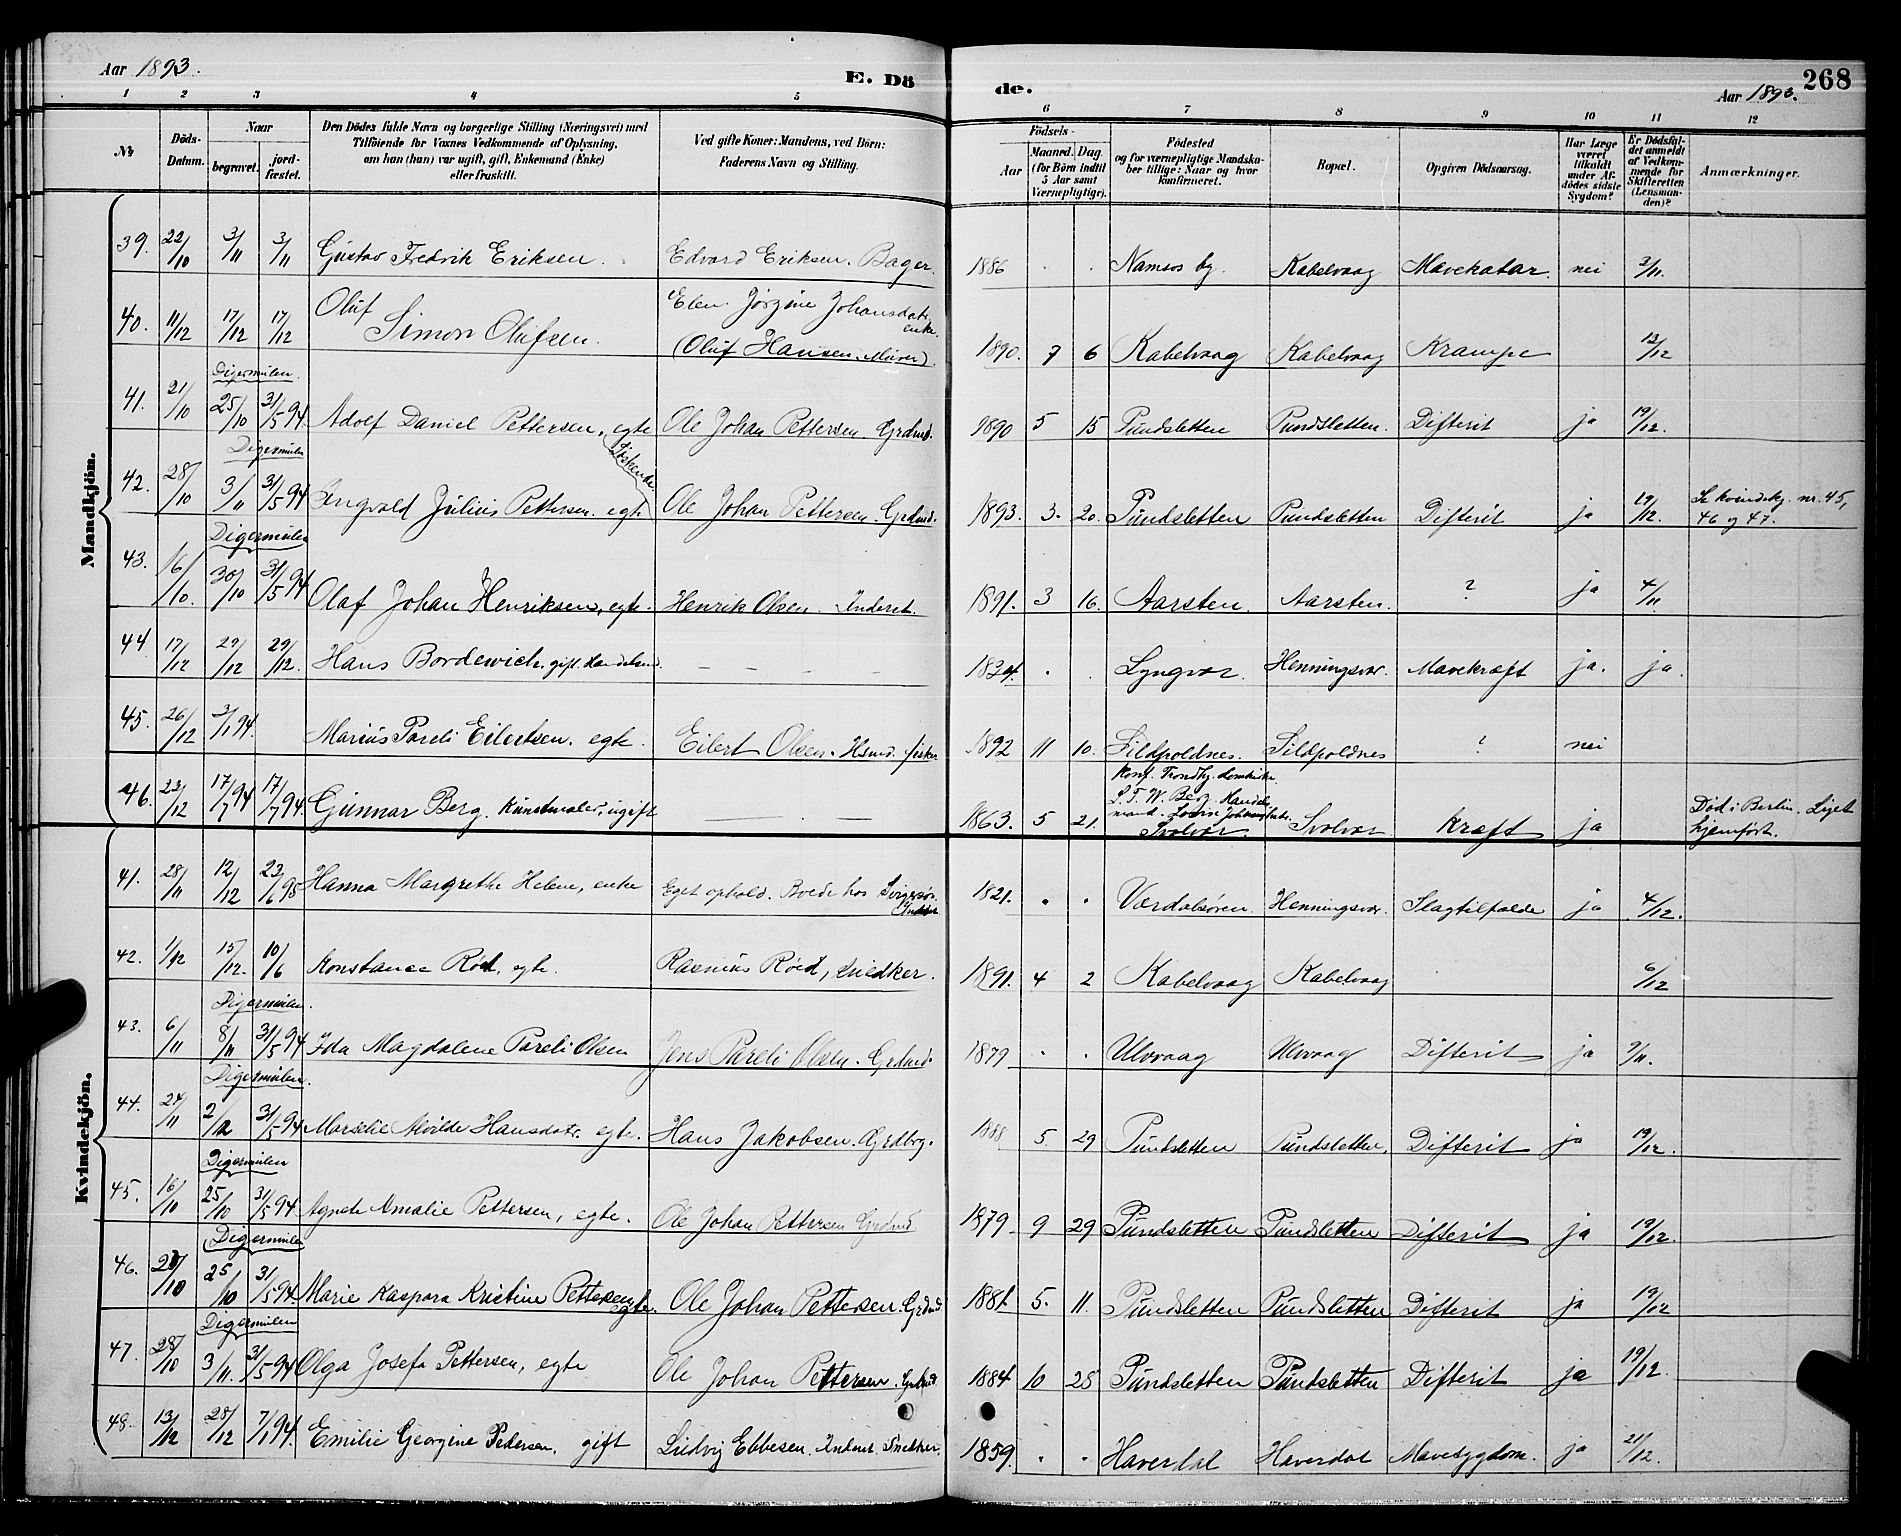 Aar 1893. E. Dö de. Aar 1893. 268
1 2 3 4 5 6 7 8 9 10 11 12
№ Döds-Datum. Naar begravet. jord-fæstet. Den Dödes fulde Navn og borgerlige Stilling (Næringsvei) med Tilföiende for Voxnes Vedkommende af Oplysning, om han (hun) var ugift, gift, Enkemand (Enke) eller fraskilt. Ved gifte Koner: Mandens, ved Börn: Faderens Navn og Stilling. Födsels- Aar Maaned. Dag (for Börn indtil 5 Aar samt Værnepligtige). Födested og for værnepligtige Mandskaber tillige: Naar og hvor konfirmeret. Bopæl. Opgiven Dödsaarsag. Har Læge været tilkaldt under Afdödes sidste Sygdom? Er Dödsfaldet anmeldt af Vedkommende for Skifteretten (Lensmanden)? Anmærkninger.
Mandkjön.
39. 22/10 3/11 3/11 Gustav Fredrik Eriksen. Edvard Eriksen. Bager. 1886 . . Namsos by. Kabelvaag Mavekatar nei 3/11.
40. 11/12 17/12 17/12 Oluf Simon Olufsen. Elen Jørgine Johansdatr. enke (Oluf Hansen. Murer). 1890. 7 6 Kabelvaag Kabelvaag Krampe 12/12
Digermulen.
41. 21/10 25/10 31/5 94 Adolf Daniel Pettersen, egte Ole Johan Pettersen. Grdmd. 1890 5 15 Pundsletten Pundsletten. Difterit ja 19/12.
Digermulen
42. 28/10 3/11 31/5 94 Ingvald Julius Pettersen. egte Ole Johan Pettersen. Grdmd. 1893. 3. 20. Pundsletten Pundsletten Difterit ja 19/12. Se kvindekj. nr. 45, 46 og 47.
Digermulen
43. 16/10. 30/10 31/5 94 Olaf Johan Henriksen, egte. Henrik Olsen. Inderst. 1891. 3 16. Aarsten. Aarsten. ? ja 4/11
44 17/12 29/12 29/12. Hans Bordewich. gift. Handelsmd. – – – – 1834. . . Lyngvær. Henningsvær. Mavekræft ja. ja.
45. 26/12 3/1 94. Marius Pareli Eilertsen. egte. Eilert Olsen. Hsmd. fisker 1892 11 10. Sildpoldnes. Sildpoldnes ? nei
46. 23/12 17/7 94 17/7 94. Gunnar Berg. Kunstmaler, ugift – – – 1863. 5 21. Konf. Trondhj. domkirke L. T. W. Berg. Handelsmand. Lovise Johnsen Svolvær Svolvær Kræft ja Död i Berlin. Liget hjemført.
Kvindekjön.
41. 28/11 12/12 23/6 95 Hanna Margrethe Helene, enke Eget ophold. Boede hos Svigersøn. 1821. . . Værdalsøren. Henningsvær. Slagtilfælde ja 4/12.
42. 1/12 15/12. 10/6 Konstance Röed, egte. Rasmus Röed, snedker. 1891. 4 2 Kabelvaag Kabelvaag 6/12
Digermulen.
43. 6/11 8/11 31/5 94 Ida Magdalene Pareli Olsen Jens Pareli Olsen. Grdmd. 1879 . . Ulvvaag Ulvvaag Difterit ja 9/11.
Digermulen.
44. 24/11 2/12 31/5 94 Marselie Alvilde Hansdatr. egte. Hans Jakobsen. Grdbrg. 1888 5. 29 Pundsletten Pundsletten, Difterit ja 19/12.
Digermulen
45. 16/10 25/10 31/5 94 Agnete Amalie Pettersen, egte. Ole Johan Pettersen Grdmd. 1879 9 29 Pundsletten Pundsletten Difterit ja 19/12.
Digermulen
46. 25/10 31/5 94. Marie Kaspara Kristine Pettersen egte. Ole Johan Pettersen. Grdmd. 1881 5. 11. Pundsletten Pundsletten Difterit ja 19/12
Digermulen
47. 28/10 3/11. 31/5 94 Olga Josefa Pettersen, egte Ole Johan Pettersen. Grdmd. 1884 10 25 Pundsletten Pundsletten Difterit ja 19/12.
48. 13/12 28/12 7/1 94. Emilie Georgine Pedersen. gift Ludvig Ebbesen. Inderst. Snedker. 1859. . . Haverdal Haverdal Mavesygdom. ja 21/12.